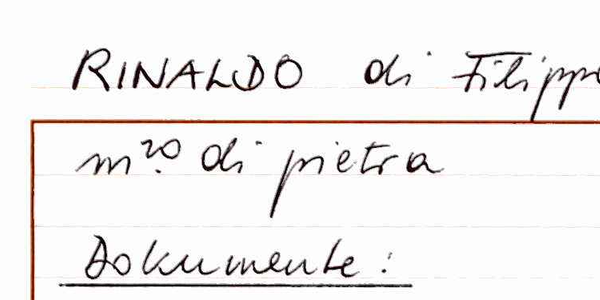 RINALDO di Filippo
m.ro di pietra
Dokumente: